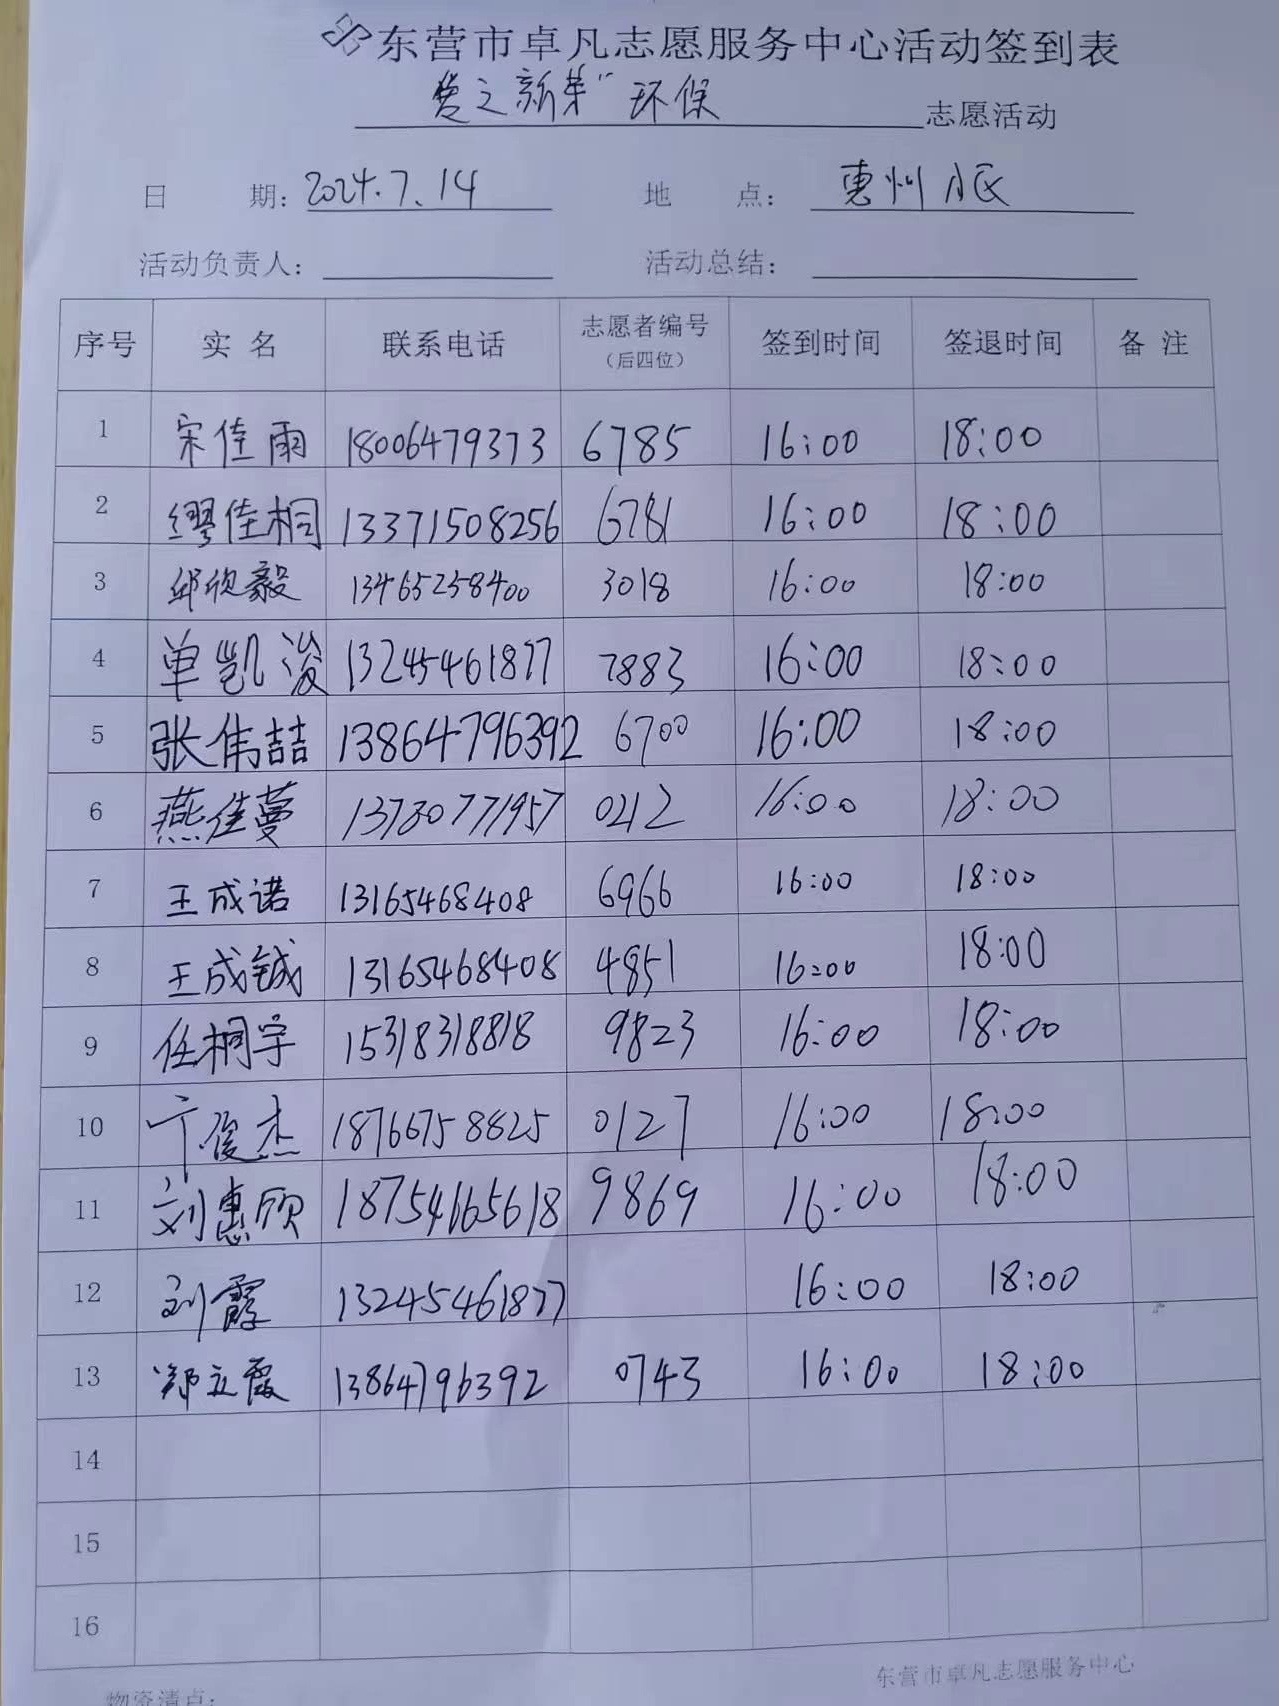 东营市卓凡志愿服务中心活动签到表
爱之新芽" 环保 志愿活动
日 期: 2024.7.14 地 点: 惠州小区
活动负责人: 活动总结:
序号 实 名 联系电话 志愿者编号(后四位) 签到时间 签退时间 备 注
1 宋佳雨 18006479373 6785 16:00 18:00
2 缪佳桐 13371508256 6781 16:00 18:00
3 邱欣毅 13465258400 3018 16:00 18:00
4 单凯浚 13245461877 7883 16:00 18:00
5 张伟喆 13864796392 6700 16:00 18:00
6 燕佳蔓 13780771957 0212 16:00 18:00
7 王成诺 13165468408 6966 16:00 18:00
8 王成铖 13165468408 4851 16:00 18:00
9 任桐宇 15318318818 9823 16:00 18:00
10 俊杰 18766758825 0127 16:00 18:00
11 刘惠欣 18754665618 9869 16:00 18:00
12 刘霞 13245461877 16:00 18:00
13 郑立霞 13864796392 0743 16:00 18:00
14
15
16
东营市卓凡志愿服务中心
物资清点: